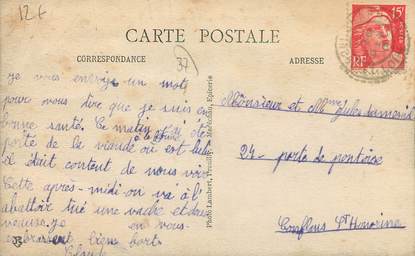 12 f
CARTE POSTALE
37
CORRESPONDANCE
ADRESSE
15F
POSTES
RF
je vous envoye un mot
pour vous dire que je suis en
bonne santé. Ce matin j'ai été
porté de la viande où est lulu
il était content de nous voir
Cette après-midi on va à l'
abattoir tué une vache et deux
je vous
embrassant bien fort
Claude
Photo Lambert, Mercerie, Epicerie
Monsieur et Mme Jules
24 - porte de pontoise
Conflans Ste Honorine